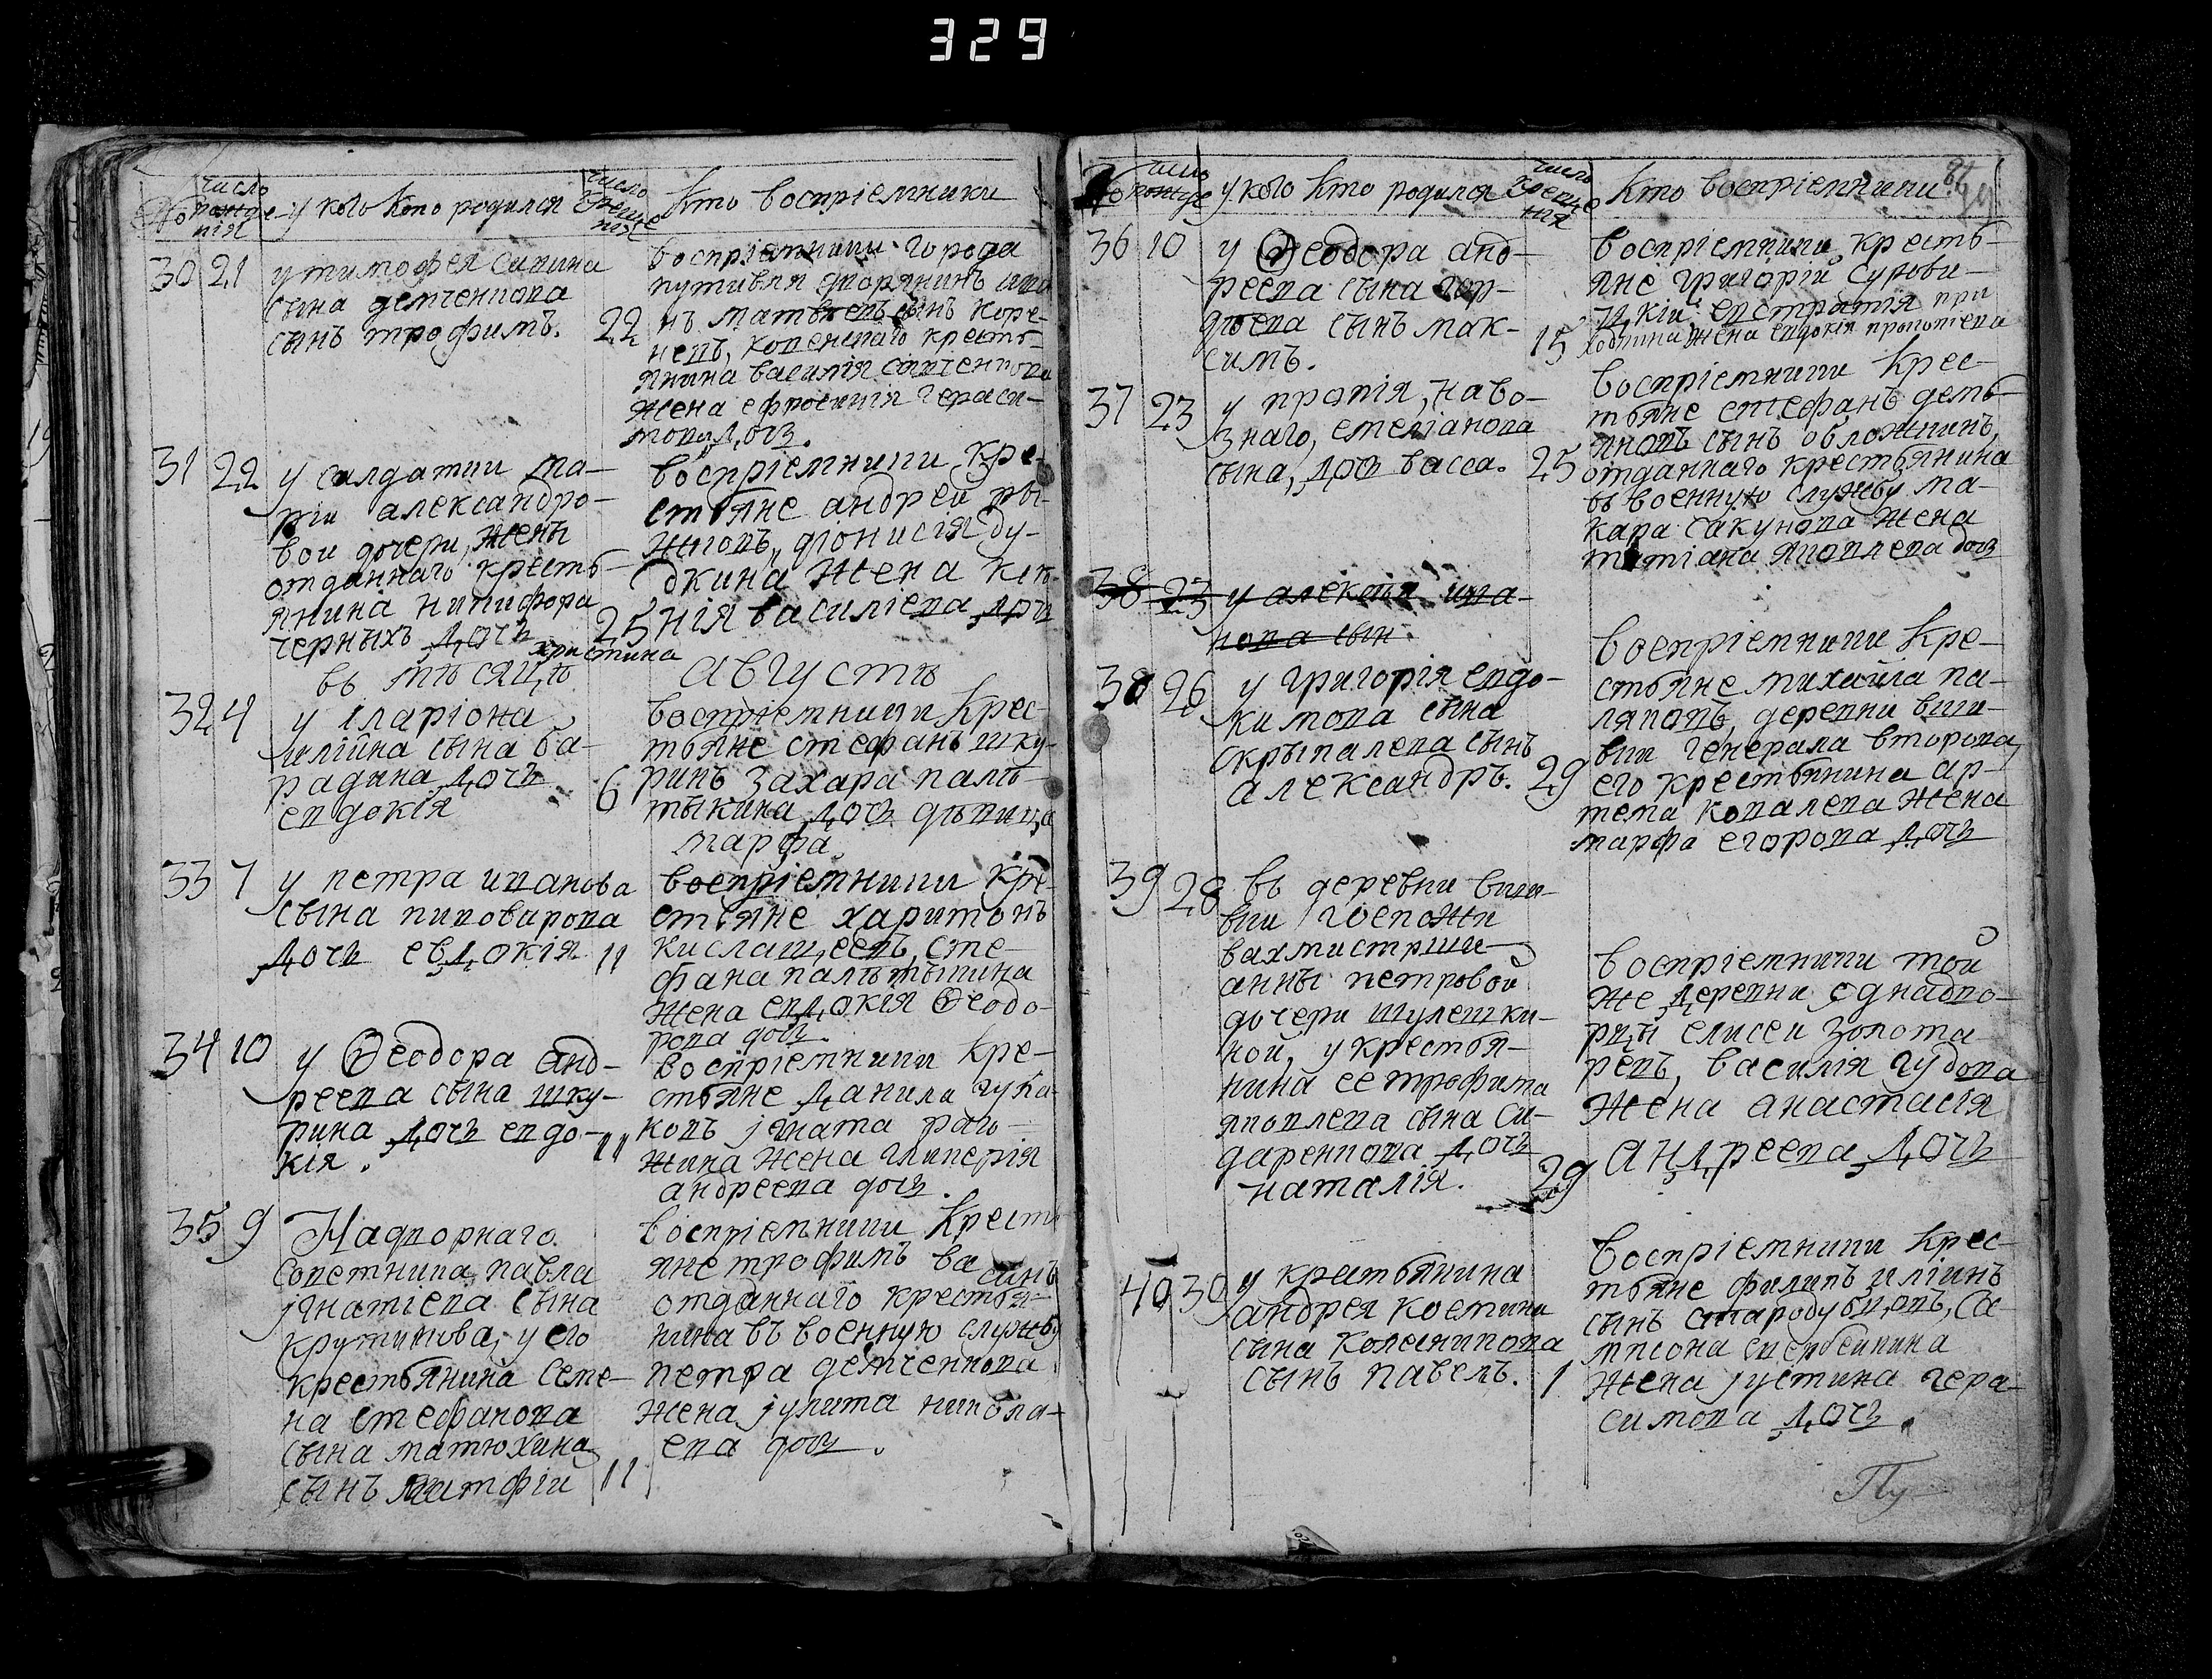 329
№
число
рожде
нія
у кого кто родился
число
креще
нія
кто воспріемники
30 21
у тимофея савина
сына демченкова
сынъ трофимъ.
22
воспріемники города
путивля дворянинъ ива
нъ матвеевъ сынъ коре
невъ, коренскаго кресть
янина василія
жена ефросинія гераси
мова дочь.
31 22
у салдатки ма
ріи александро
вои дочери, жены
отданнаго кресть
янина никифора
черныхъ дочь
христина
25
воспріемники кре
стьяне андрей ры
жковъ, діонисія ду
дкина жена ксе
нія василіева дочь
въ мѣсяцѣ августѣ
32 4
у іларіона
иліина сына ба
радина дочь
евдокія
6
воспріемники крес
тьяне стефанъ шку
ринъ захара палъ
тыкина дочь дѣвица
марфа.
33 7
у петра иванова
сына пивоварова
дочь евдокія
11
воспріемники кре
стьяне харитонъ
кислащеевъ, сте
фана палътыкина
жена евдокія Ѳеодо
рова дочь.
34 10
у Ѳеодора анд
реева сына шку
рина дочь евдо
кія.
11
воспріемники кре
стьяне данила чука
ковъ ігната рего
жина жена гликерія
андреева дочь.
35 9
Надворнаго
советника павла
ігнатіева сына
крутикова, у его
крестьянина семе
на стефанова
сына матюхина
сынъ матфіи
11
воспріемники кресть
яне трофимъ ва синъ
отданнаго крестья
нина въ военную службу
петра демченкова
жена јулита никола
ева дочь.
№
число
рожде
у кого кто родился
число
креще
нія
кто воспріемники
36 10
у Ѳеодора анд
реева сына гор
дѣева сынъ мак
симъ.
15
воспріемники кресть
яне григорій сурови
цкіи евстратія при
ходкина жена евдокія прокопіева
37 23
у прокія, наво
знаго, емеліанова
сына, дочь васса.
25
воспріемники крес
тьяне стефанъ демь
яновъ сынъ обложкинъ,
отданнаго крестьянина
въ военную службу ма
кара сакунова жена
татіана яковлева дочь
38 23
у алексѣя ива
нова сын
38 26
у григорія евдо
кимова сына
скрыпалева сынъ
александръ.
29
воспріемники кре
стьяне михайла па
ляковъ, деревни вши
вки генерала второва
его крестьянина ар
тема ковалева жена
марфа егорова дочь
39 28
въ деревни вши
вки госпожи
вахмистрши
анны петровой
дочери шулешки
ной, у крестья
нина ее трофима
яковлева сына си
даренкова дочь
наталія.
29
воспріемники той
же деревни однадво
рцы елисеи золота
ревъ, василія гудова
жена анастасія
андреева дочь
40 30
у крестьянина
андрея космина
сына колесникова
сынъ павелъ.
1
воспріемники крес
тьяне филипъ иліинъ
сынъ стародубцовъ, са
мпсона
жена јустина гера
симова дочь.
Пу